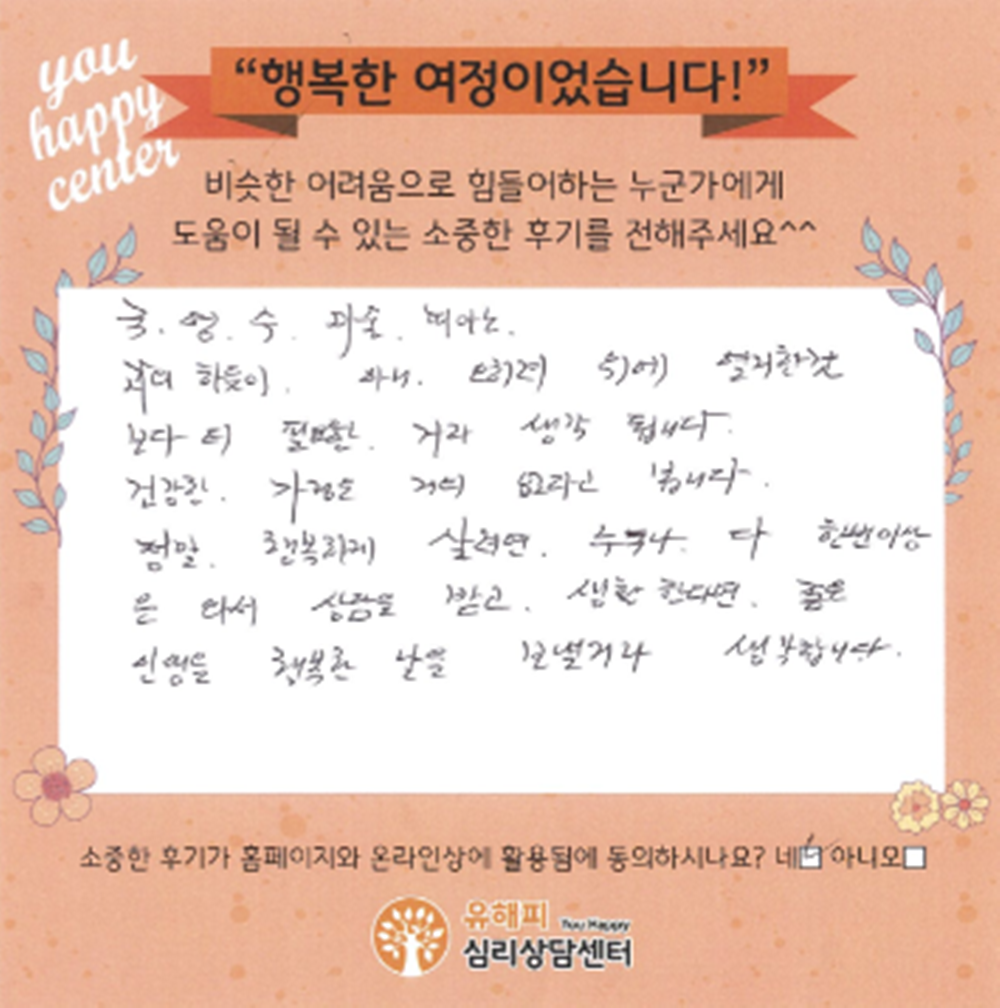 you
happy
center
“행복한 여정이었습니다!”
비슷한 어려움으로 힘들어하는 누군가에게
도움이 될 수 있는 소중한 후기를 전해주세요^^
국. 영. 수. 미술. 피아노.
과외 하듯이. 아니. 오히려 위에 열거한것
보다 더 필요한. 거라 생각 됩니다.
건강한. 가정은 거의 없다고 봅니다.
정말. 행복하게 살려면. 누구나 다 한번이상
은 와서 상담을 받고. 생활 한다면. 좋은
인생을 행복한 날을 보낼거라 생각합니다.
소중한 후기가 홈페이지와 온라인상에 활용됨에 동의하시나요? 네 아니오
유해피 You Happy
심리상담센터